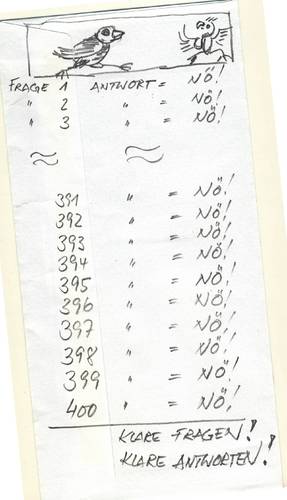 FRAGE 1 ANTWORT = NÖ!
" 2 " = NÖ!
" 3 " = NÖ!
≈ ≈
391 " = NÖ!
392 " = NÖ!
393 " = NÖ!
394 " = NÖ!
395 " = NÖ!
396 " = NÖ!
397 " = NÖ!
398 " = NÖ!
399 " = NÖ!
400 " = NÖ!
KLARE FRAGEN!
KLARE ANTWORTEN!